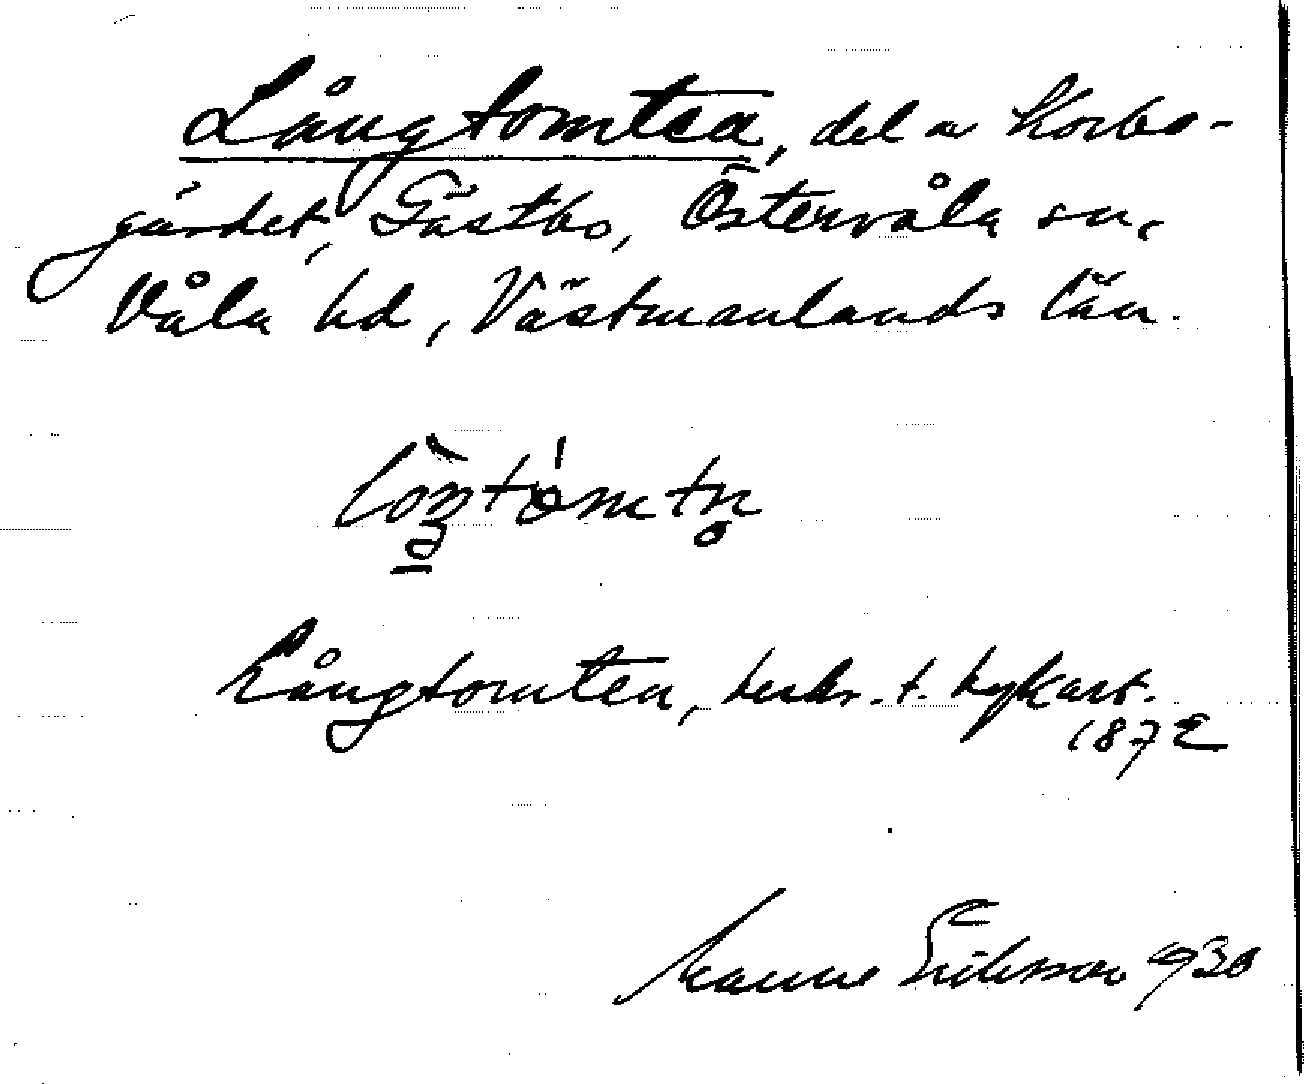 Långtomten, del av Korbo-
gärdet, Gästbo, Östervåla sn,
Våla hd, Västmanlands län.
Långtomten, beskr. t. lgkart.
1872
Manne Eriksson 1930